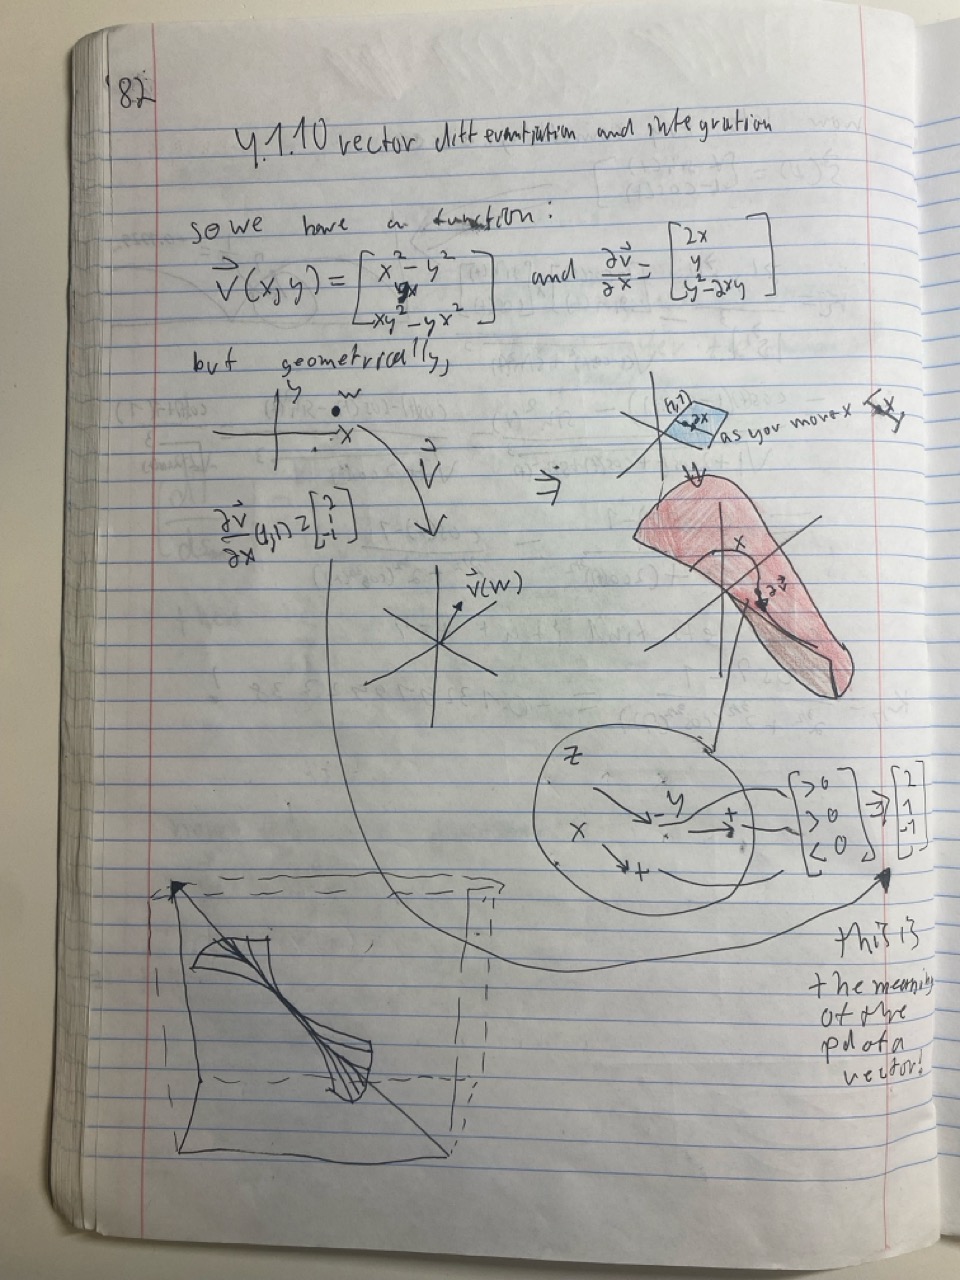 82
4.1.10 vector differentiation and integration
so we have a function:
V⃗(x,y) = [x² - y², yx, xy² - yx²] and ∂V⃗/∂x = [2x, y, y² - 2xy]
but geometrically,
y
w
x
V⃗
∂V⃗/∂x (1,1) = [2, 1, -1]
⇒
(1,1)
∂x
as you move x
V⃗(w)
x
∂V⃗
z
x
- y +
+
[>0, >0, <0] ⇒ [2, 1, -1]
this is
the meaning
of the
pd of a
vector!